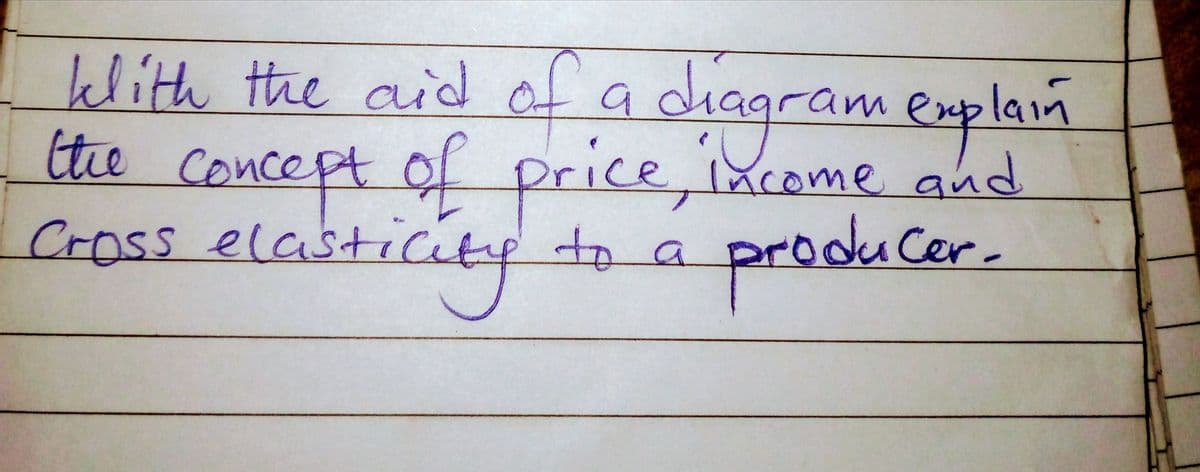 With the aid of a diagram explain
the concept of price, income and
Cross elasticity to a producer.